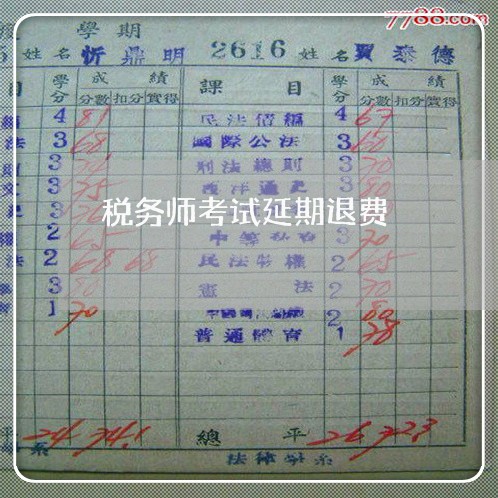 7788.com
學期
姓名 忻鼎明 2616 姓名 賈泰德
目 學分 成績 課目 學分 成績
分數 扣分 實得 分數 扣分 實得
4 81 民法債編 4 67
法 3 68 國際公法 3 60
3 刑法總則 3 70
3 75 西洋通史 3 80
税务师考试延期退费
2 65 3 70
法 2 68 68 民法物權 2 65
3 80 憲法 2 70
1 70 2 80
普通體育 1 78
平 24 74.1 總平 26 72.3
系 法律學系